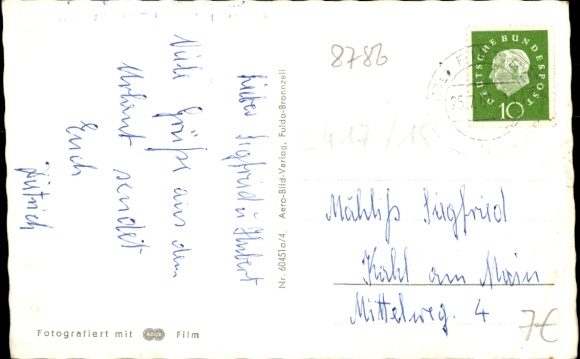 Lieber Siegfried u. Hubert
Viele Grüße aus dem
sendet
Euch
Dietrich
Nr. 60451a/4. Aero-Bild-Verlag, Fulda-Bronnzell
Fotografiert mit ADOX Film
8786
DEUTSCHE BUNDESPOST
10
Siegfried
Kahl am Main
Mittelweg. 4
7€